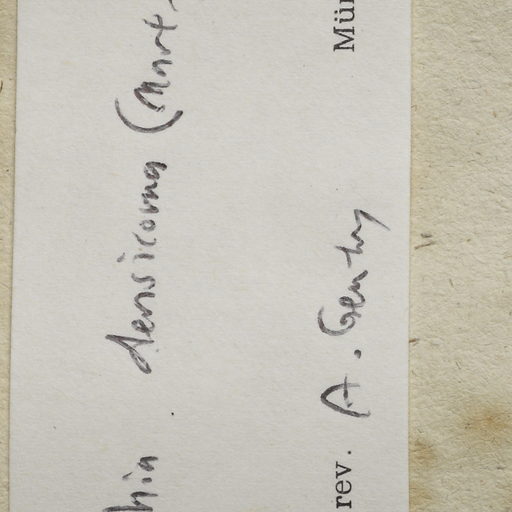 hia densicoma (Mart.
rev. A. Gentry Mün